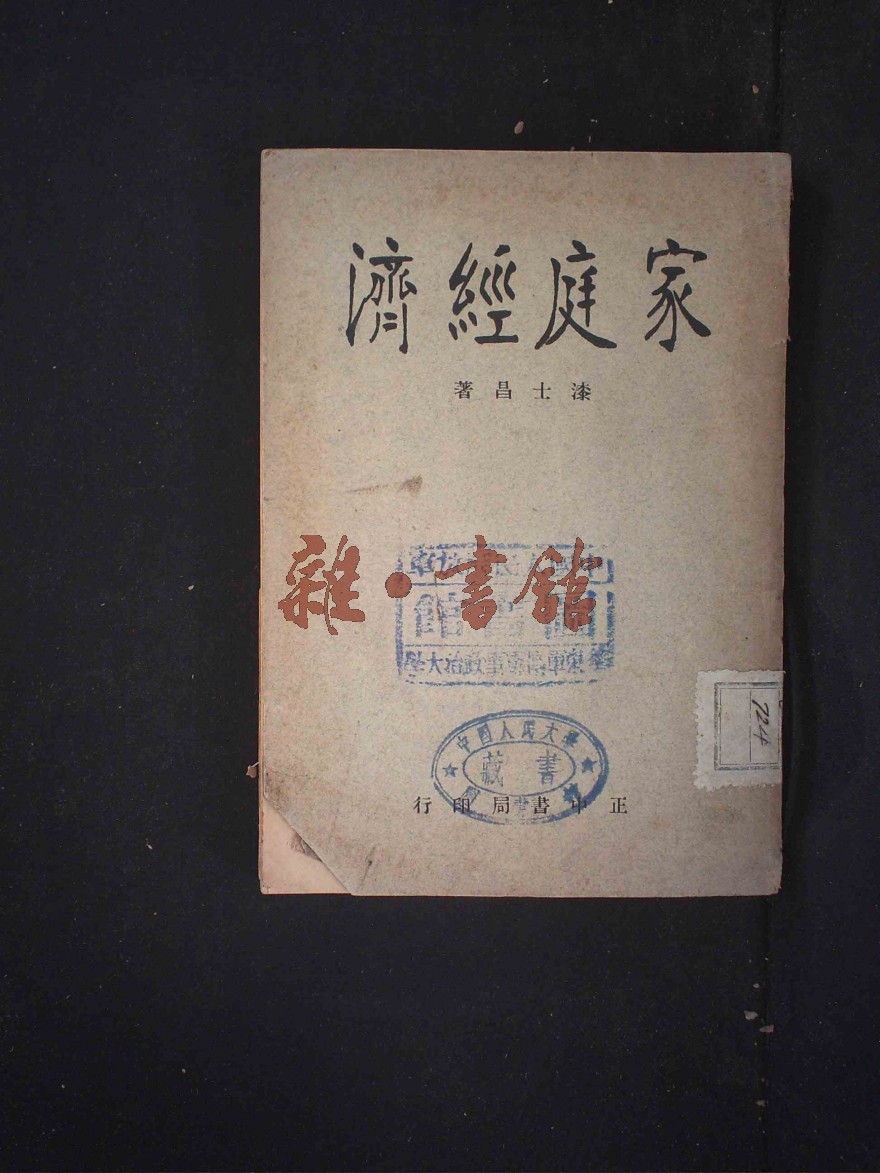 家庭經濟
漆士昌著
雜·書館
圖書館
軍事政治大學
中國人民大學
藏書
正中書局印行
724